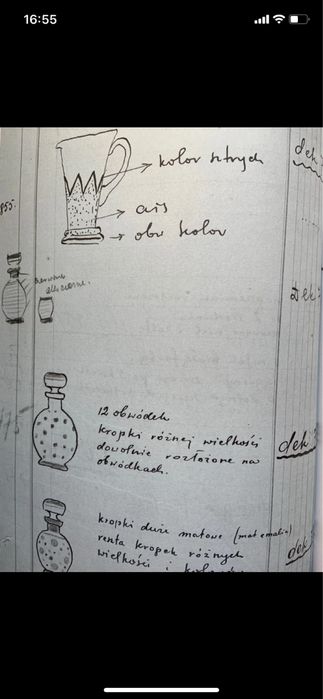 16:55
kolor sztrych
dek
ais
855.
obw kolor
dek
12 obwódek
kropki różnej wielkości
dowolnie rozłożone na
obwódkach.
dek
kropki duże matowe (mat emalia)
renta kropek różnych
wielkości i
dek